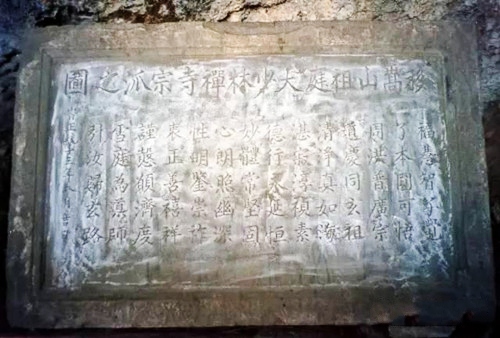 移嵩山祖庭大少林禪寺宗派之圖
福慧智子覺
了本圓可悟
周洪普廣宗
道慶同玄祖
清淨真如海
湛寂淳禎素
德行永延恒
妙體常堅固
心朗照幽深
性明鑒崇祚
衷正善禧祥
謹愨願濟度
雪庭為導師
引汝歸玄路